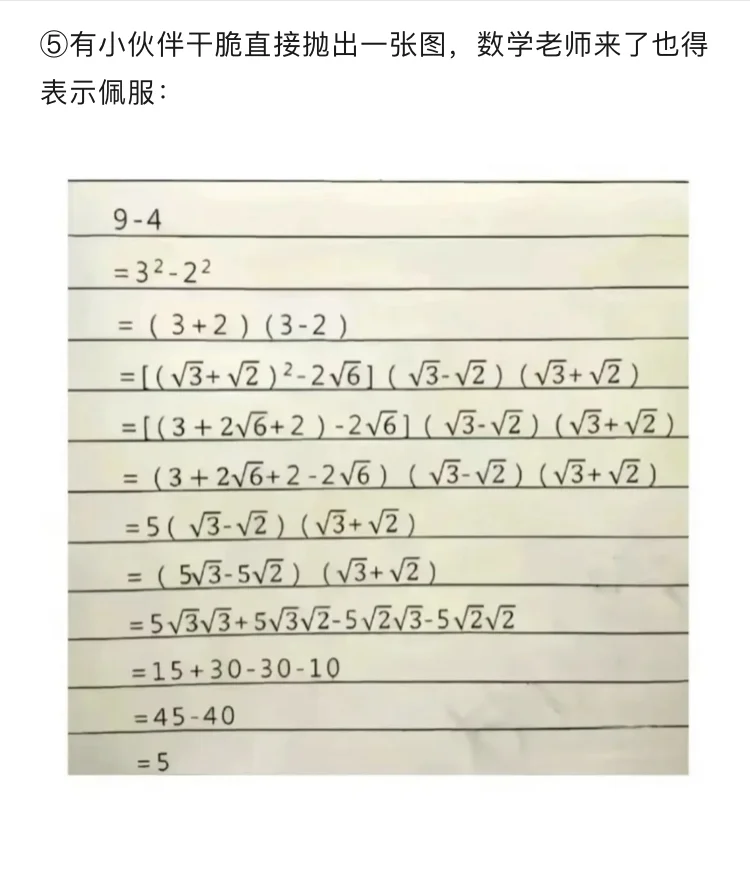 ⑤有小伙伴干脆直接抛出一张图，数学老师来了也得
表示佩服：
9-4
=3²-2²
=(3+2)(3-2)
=[(√3+√2)²-2√6](√3-√2)(√3+√2)
=[(3+2√6+2)-2√6](√3-√2)(√3+√2)
=(3+2√6+2-2√6)(√3-√2)(√3+√2)
=5(√3-√2)(√3+√2)
=(5√3-5√2)(√3+√2)
=5√3√3+5√3√2-5√2√3-5√2√2
=15+30-30-10
=45-40
=5